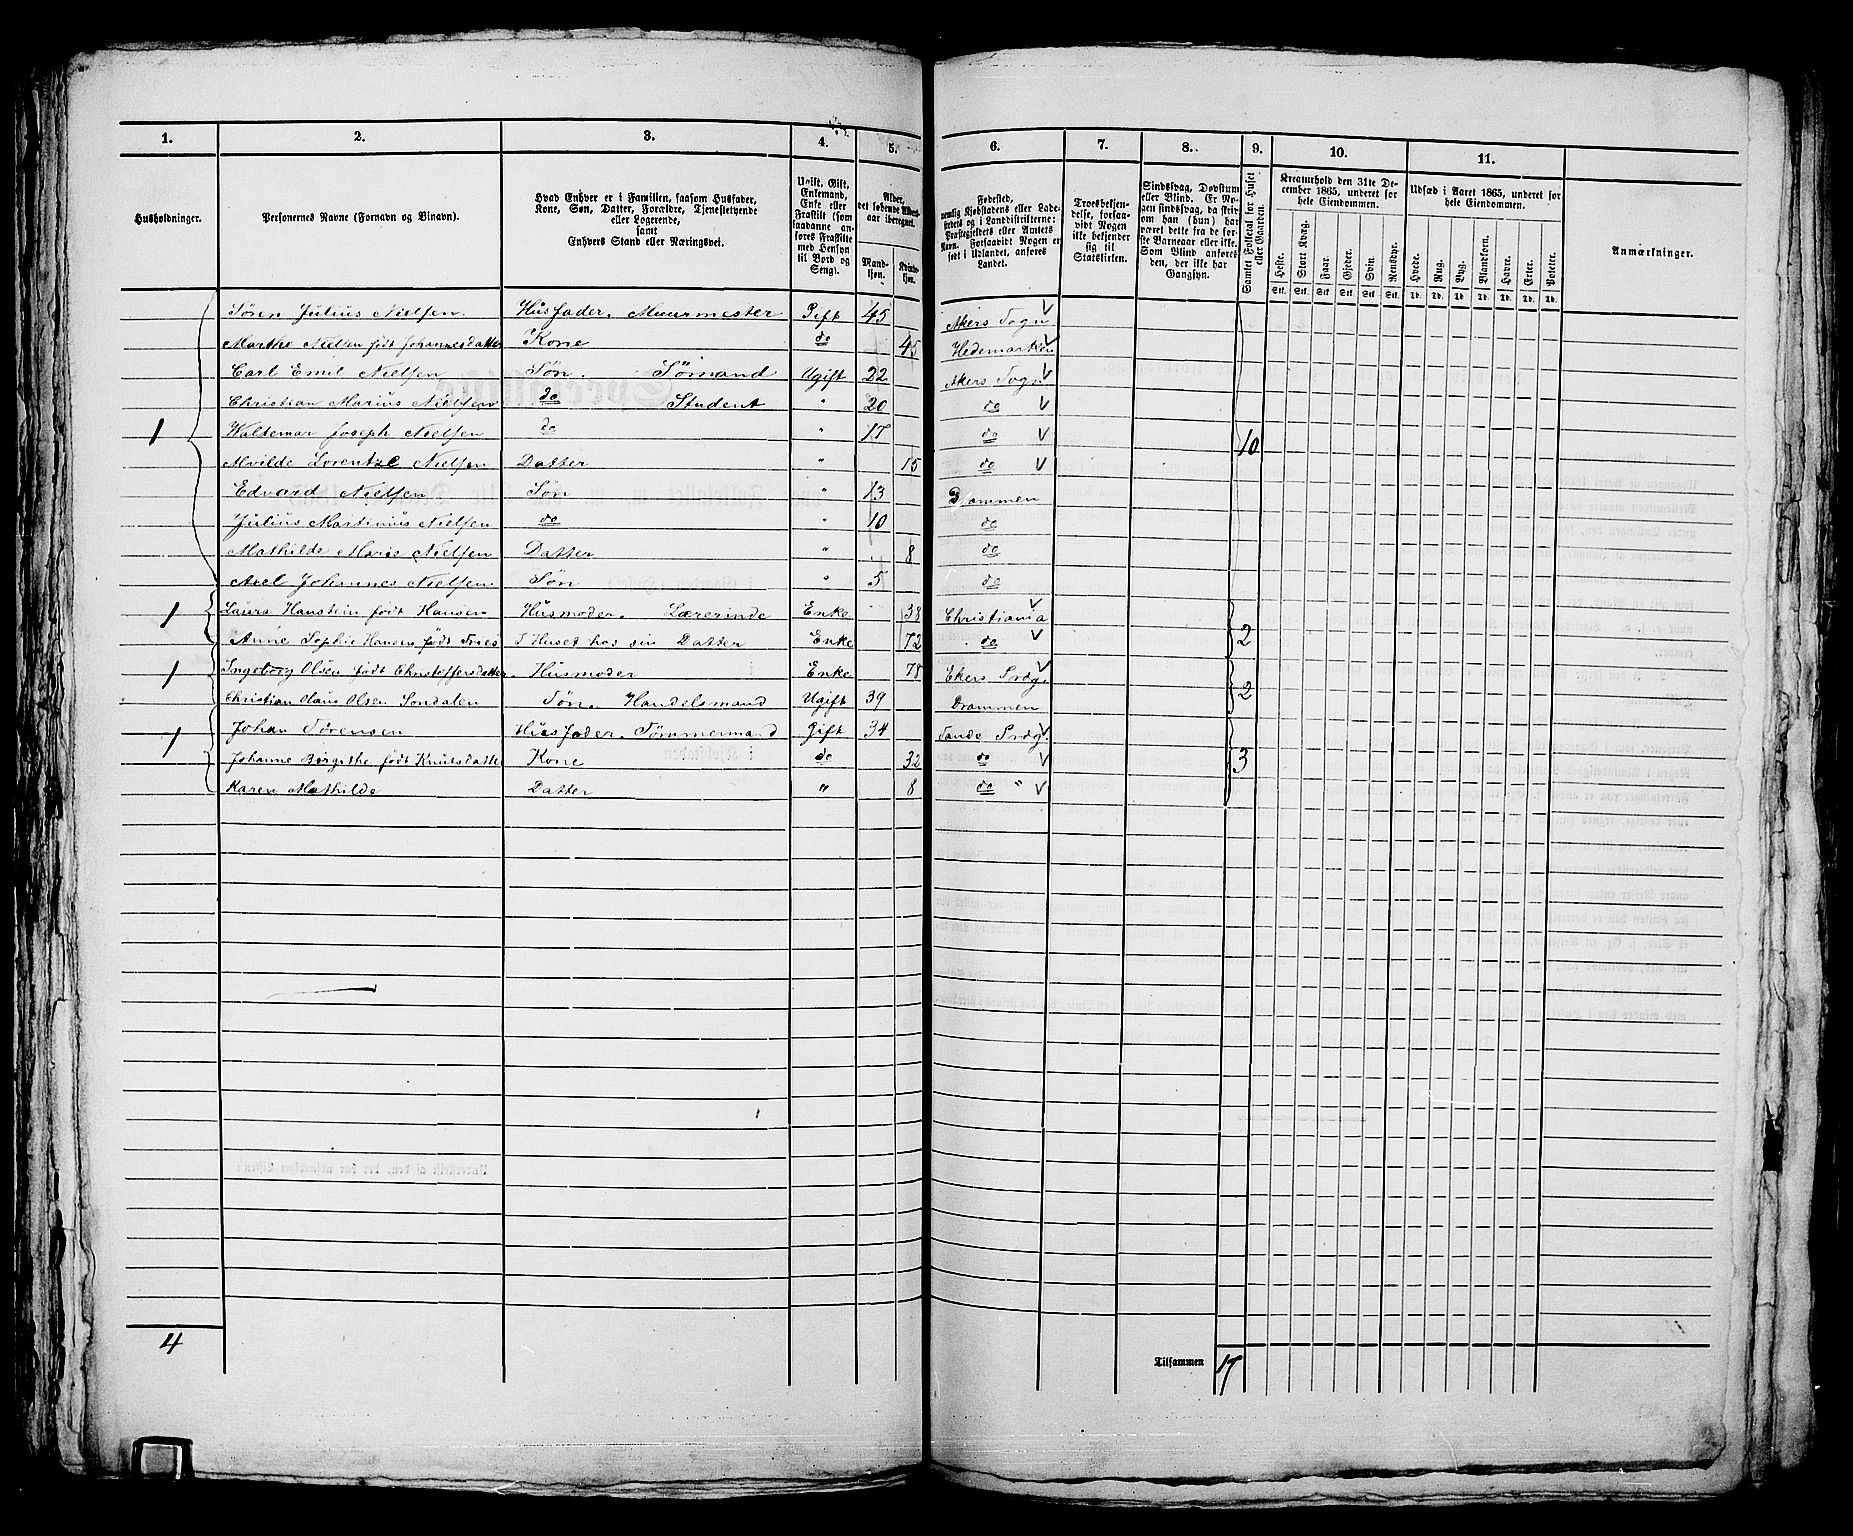 1. 2. 3. 4. 5. 6. 7. 8. 9. 10. 11.
Husholdninger.
Personernes Navne (Fornavn og Binavn).
Hvad Enhver er i Familien, saasom Husfader,
Kone, Søn, Datter, Forældre, Tjenestetyende
eller Logerende,
samt
Enhvers Stand eller Næringsvei.
Ugift, Gift,
Enkemand,
Enke eller
Fraskilt (som
saadanne an-
føres Fraskilte
med Hensyn
til Bord og
Seng).
Alder,
det løbende Alders-
aar iberegnet.
Mand-
kjøn.
Kvinde-
kjøn.
Fødested,
nemlig Kjøbstadens eller Lade-
stedets og i Landdistrikterne:
Præstegjeldets eller Amtets
Navn. Forsaavidt Nogen er
født i Udlandet, anføres
Landet.
Troesbekjen-
delse, forsaa-
vidt Nogen
ikke bekjender
sig til
Statskirken.
Sindssvag, Døvstum
eller Blind. Er No-
gen sindssvag, da skri-
ves om han (hun) har
været dette fra de før-
ste Barneaar eller ikke.
Som Blind anføres
den, der ikke har
Gangsyn.
Samlet Folketal for Huset
eller Gaarden.
Kreaturhold den 31te De-
cember 1865, underet for
hele Eiendommen.
Heste. Stort Kvæg. Faar. Gjeder. Svin. Rensdyr.
Stk. Stk. Stk. Stk. Stk. Stk.
Udsæd i Aaret 1865, underet for
hele Eiendommen.
Hvede. Rug. Byg. Blandkorn. Havre. Erter. Poteter.
Td. Td. Td. Td. Td. Td. Td.
Anmærkninger.
Søren Julius Nielsen. Husfader. Muurmester Gift 45 Akers Sogn
Marthe Nielsen født Johannesdatter Kone do 45 Hedemarken
Carl Emil Nielsen Søn. Sømand Ugift 22 Akers Sogn
Christian Marius Nielsen do Student " 20 do
1 Waltemar Joseph Nielsen do " 17 do 10
Mvilde Lorentze Nielsen Datter " 15 do
Edvard Nielsen Søn " 13 Drammen
Julius Martinius Nielsen do " 10 do
Mathilde Marie Nielsen Datter " 8 do
Axel Johannes Nielsen Søn " 5 do
1 Laura Hanstein født Hansen Husmoder. Lærerinde Enke 38 Christiania
Anne Sophie Hansen født Fries I Huset hos sin Datter Enke 72 do 2
1 Ingeborg Olsen født Christoffersdatter. Husmoder Enke 78 Ekers Præg.
Christian Olaus Olsen Sondalen Søn. Handelsmand Ugift 39 Drammen 2
1 Johan Sørensen Husfader. Tømmermand Gift 34 Sande Præg.
Johanne Birgithe født Knutsdatter Kone do 32 do 3
Karen Mathilde Datter " 8 do "
4
Tilsammen 17